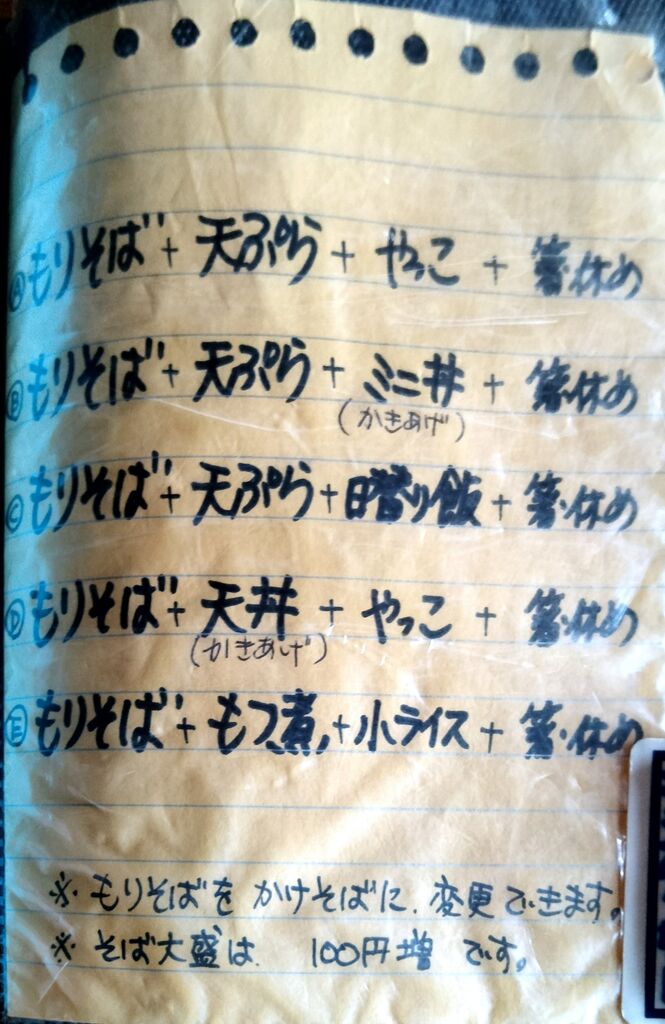 Ⓐもりそば + 天ぷら + やっこ + 箸休め
Ⓑもりそば + 天ぷら + ミニ丼 + 箸休め
(かきあげ)
Ⓒもりそば + 天ぷら + 日替り飯 + 箸休め
Ⓓもりそば + 天丼 + やっこ + 箸休め
(かきあげ)
Ⓔもりそば + もつ煮 + 小ライス + 箸休め
※. もりそばを かけそばに. 変更できます。
※ そば大盛は. 100円増 です。